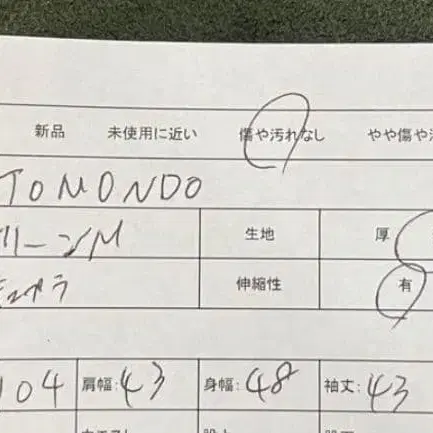 新品 未使用に近い 傷や汚れなし やや傷や
TOMONDO
リーンM 生地 厚
伸縮性 有
104 肩幅:43 身幅:48 袖丈:43